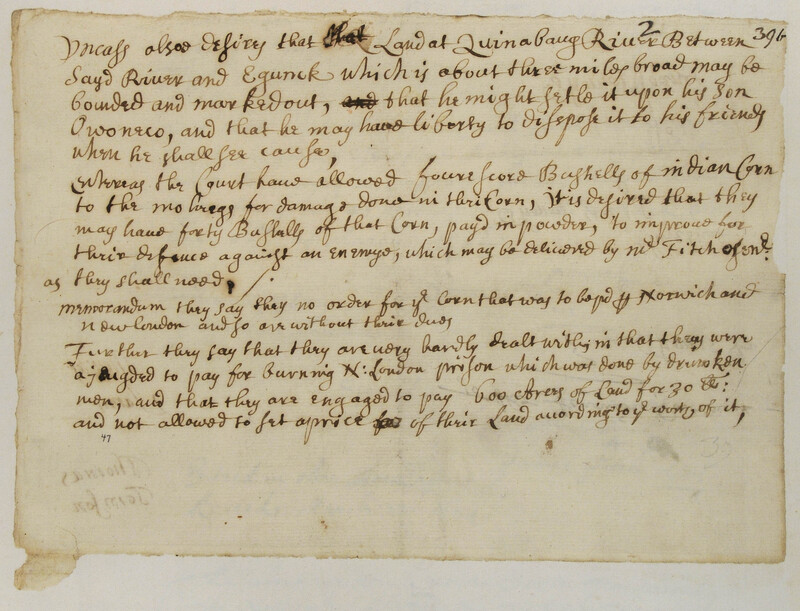 2
396
Uncass alsoe desires that that Land at Quinabaug River Between
sayd River and Egunck which is about three miles broad may be
bounded and marked out, and that he might setle it upon his Son
Owoneco, and that he may have liberty to disspose it to his friends
when he shall see cause,
Whereas the Court have allowed foure score Bushells of indian Corn
to the mohregs for damage done in thri Corn, it is desired that they
may have forty Bushells of that Corn, payd in powder, to improve for
their defence against an Enemye, which may be delivered by mr Fitch
as they shall need,
memorandum they say they no order for ye Corn that was to be pd Norwich and
New London and so are without their dues
Further they say that they are very hardly dealt with, in that they were
ajeugded to pay for burning N: London prison which was done by drunken
men, and that they are engaged to pay 600 Acres of Land for 30 ll:
and not allowed to set a price of their Land acording to ye worth of it,
47
Thomas